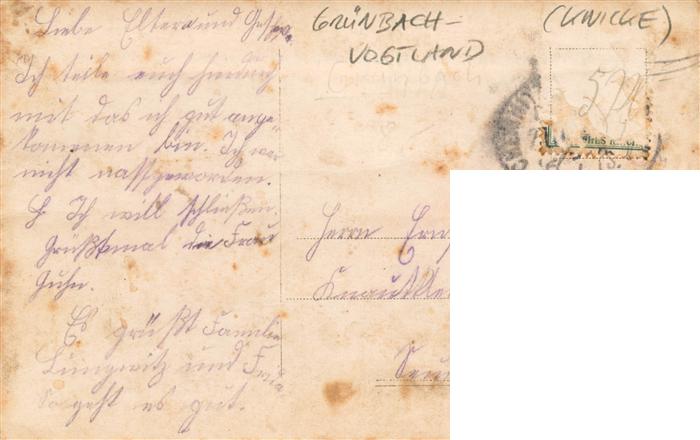 Liebe Eltern und Geschw.
Ich teile euch hierdurch
mit das ich gut ange-
kommen bin. Ich war
nicht nassgeworden.
Ich will schließen.
Grüßt mal die Frau
Guhn.
Es grüßt Familie
Lungwitz und
So geht es gut.
GRÜNBACH-
VOGTLAND
(KNICKE)
Herrn